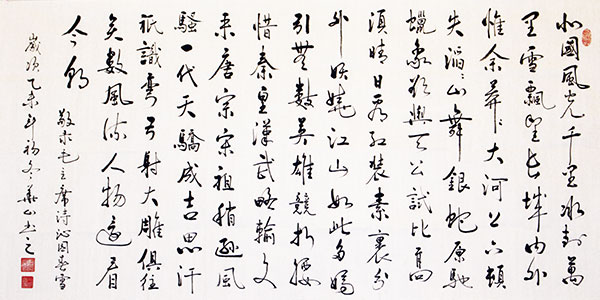 北國風光千里冰封萬
里雪飄望長城內外
惟余莽莽大河上下頓
失滔滔山舞銀蛇原馳
蠟象欲與天公試比高
須晴日看紅裝素裹分
外妖嬈江山如此多嬌
引無數英雄競折腰
惜秦皇漢武略輸文
采唐宗宋祖稍遜風
騷一代天驕成吉思汗
祇識彎弓射大雕俱往
矣數風流人物還看
今朝
敬录毛主席詩沁園春雪
歲次乙未年初冬華山書之